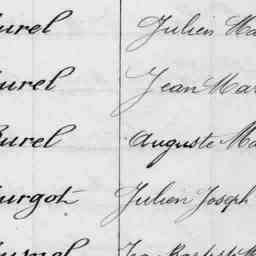 urel Julien Ma
urel Jean Mar
Burel Auguste Ma
urgot Julien Joseph